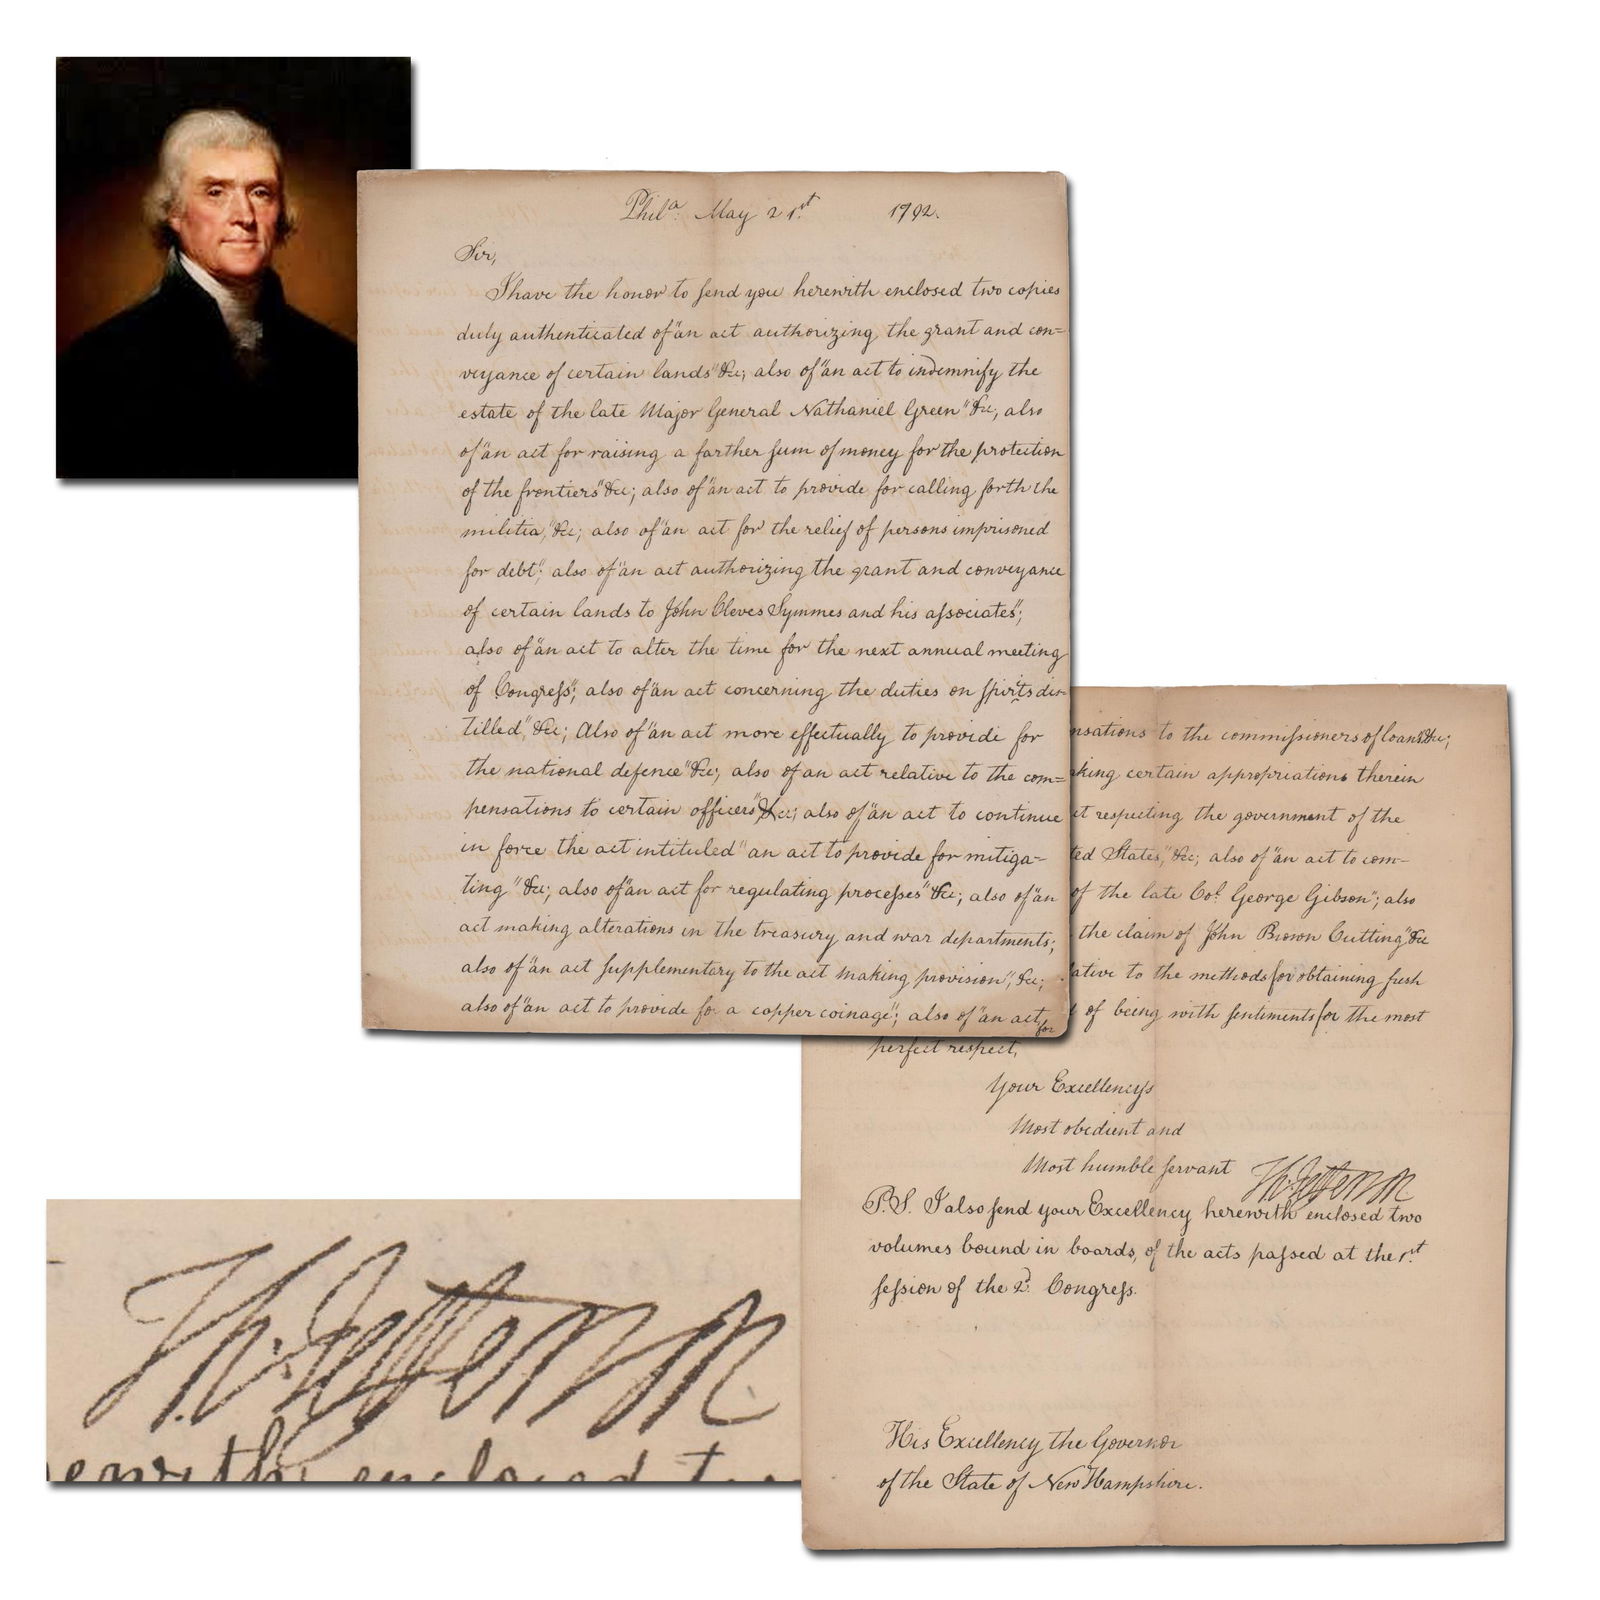 Phila. May 21st 1792.
Sir,
I have the honor to send you herewith enclosed two copies
duly authenticated of "an act authorizing the grant and con=
veyance of certain lands" &c; also of "an act to indemnify the
estate of the late Major General Nathaniel Green" &c, also
of "an act for raising a farther sum of money for the protection
of the frontiers" &c; also of "an act to provide for calling forth the
militia," &c; also of "an act for the relief of persons imprisoned
for debt"; also of "an act authorizing the grant and conveyance
of certain lands to John Cleves Symmes and his associates";
also of "an act to alter the time for the next annual meeting
of Congress"; also of "an act concerning the duties on spirits dis-
tilled," &c; Also of "an act more effectually to provide for
the national defence" &c; also of an act relative to the com=
pensations to certain officers" &c; also of "an act to continue
in force the act intituled "an act to provide for mitiga-
ting" &c; also of "an act for regulating processes" &c; also of "an
act making alterations in the treasury and war departments;
also of "an act supplementary to the act making provision", &c;
also of "an act to provide for a copper coinage"; also of "an act for
nsations to the commissioners of loans" &c;
king certain appropriations therein
ct respecting the government of the
ted States", &c; also of "an act to com-
of the late Col. George Gibson"; also
the claim of John Brown Cutting" &c
lative to the methods for obtaining fresh
of being with sentiments for the most
perfect respect,
Your Excellency's
Most obedient and
Most humble servant Th: Jefferson
P.S. I also send your Excellency herewith enclosed two
volumes bound in boards, of the acts passed at the 1st
session of the 2d. Congress.
His Excellency the Governor
of the State of New Hampshire.
Th: Jefferson
erewith enclosed t